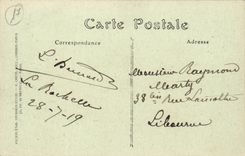 Carte Postale
Correspondance
Adresse
La Rochelle
28-7-19
Monsieur Raymond
Marty
38 bis Rue Lamothe
Libourne